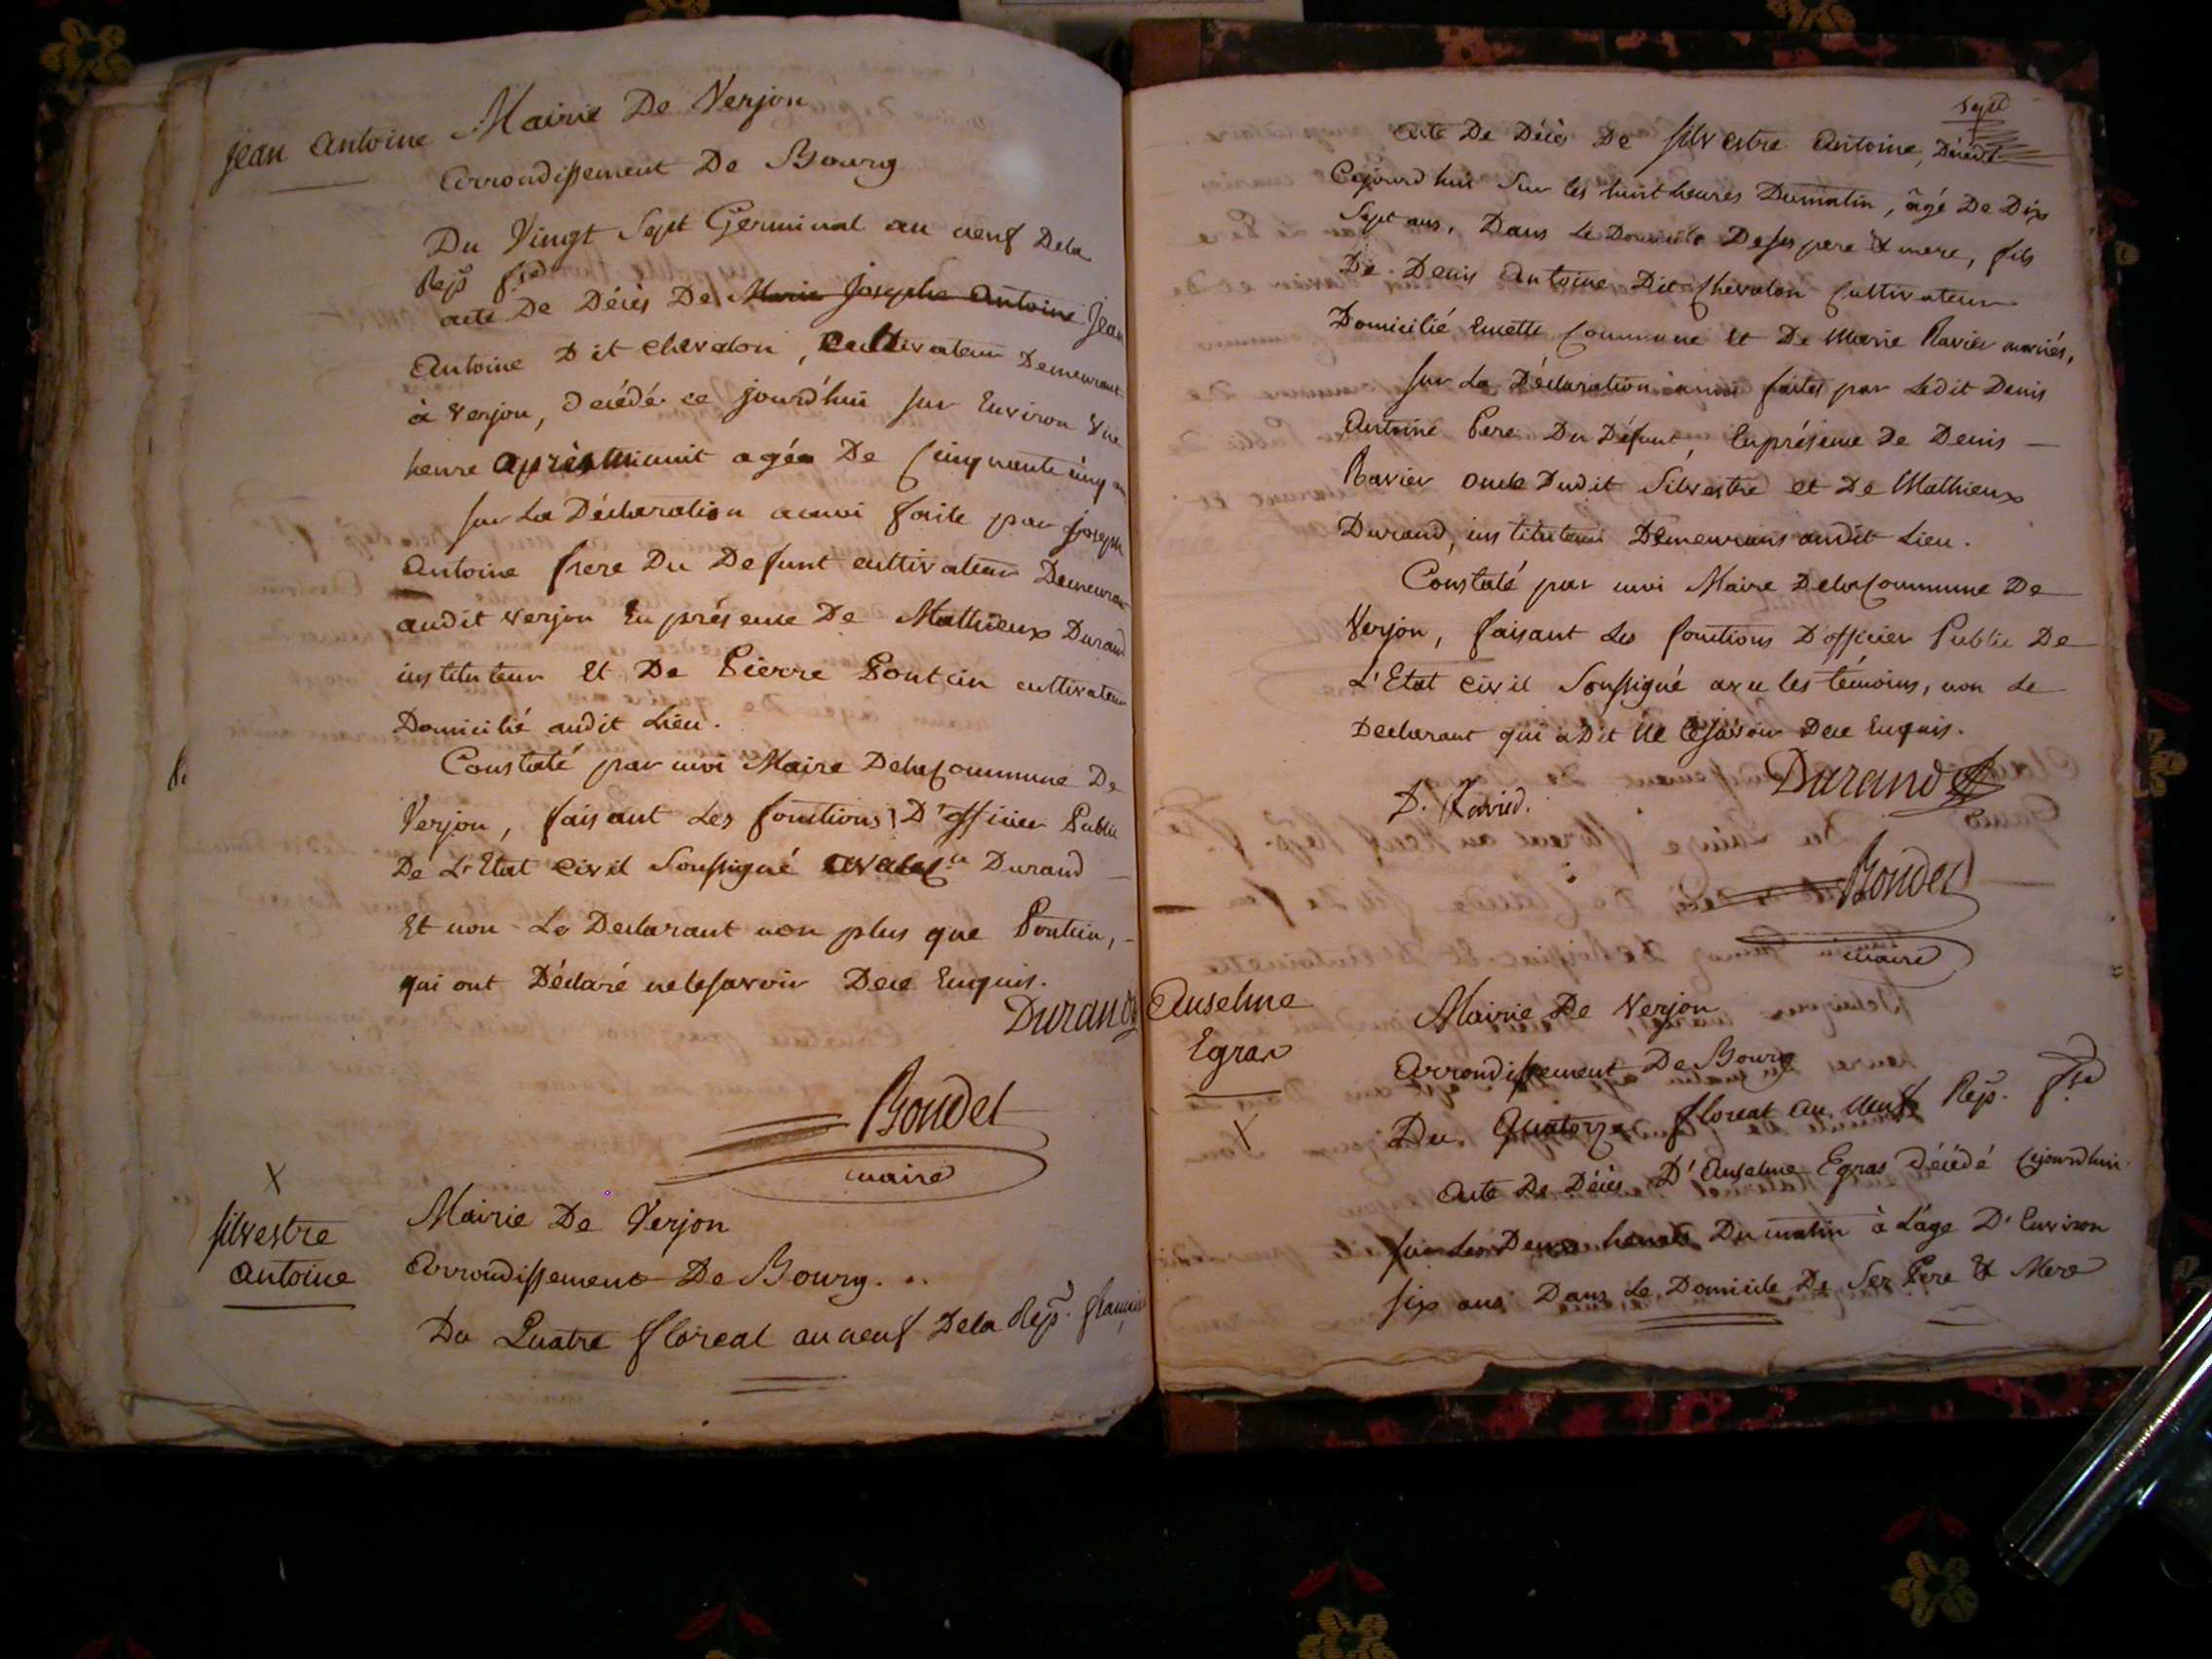 Jean Antoine
Mairie De Verjon
Arrondissement De Bourg
Du Vingt Sept Germinal an neuf Dela
Rep. fse
acte De Décès De Marie Josephe Antoine Jean
Antoine Dit chevalon, Cultivateur Demeurant
à Verjon, Décédé ce jourd'hui sur Environ Une
heure après minuit agée De Cinquante cinq an
sur La Déclaration a moi faite par Joseph
Antoine frere Du Defunt cultivateur Demeuran
audit Verjon En présence De Mathieux Durand
instituteur Et De Pierre Pontcin cultivateur
Domicilié audit Lieu.
Constaté par moi Maire Dela Commune De
Verjon, faisant Les fonctions D'officier Public
De L'Etat Civil Soussigné Durand
Et non Le Declarant non plus que Pontcin,
qui ont Déclaré ne le savoir Dece Enquis.
Durand
Bondet
maire
X
Silvestre
Antoine
Mairie De Verjon
Arrondissement De Bourg.
Du Quatre floreal an neuf Dela Rep. francaise
Sept
Acte De Décès De Silvestre Antoine, Décédé
Cejourd'hui Sur les huit heures Dumatin, âgé De Dix
Sept ans, Dans Le Domicile De ses pere & mere, fils
De Denis Antoine Dit Chevalon Cultivateur
Domicilié Encette Commune Et De Marie Ravier mariés,
sur La Déclaration a moi faites par Ledit Denis
Antoine Pere Du Défunt, En présence De Denis
Ravier oncle Dudit Silvestre et De Mathieux
Durand, instituteur Demeurans audit Lieu.
Constaté par moi Maire Dela Commune De
Verjon, faisant Les fonctions D'officier Public De
L'Etat Civil Soussigné avec les témoins, non Le
Declarant qui a Dit Ne le savoir Dece Enquis.
Durand
D. Ravier.
Bondet
maire
Anselme
Egras
X
Mairie De Verjon
Arrondissement De Bourg
Du Quatorze floreal an Neuf Rep. fse
Acte De Décès D'Anselme Egras Décédé Cejourdhui
sur Les Deux heures Du matin à L'age D'Environ
six ans Dans Le Domicile De Ses Pere & Mere